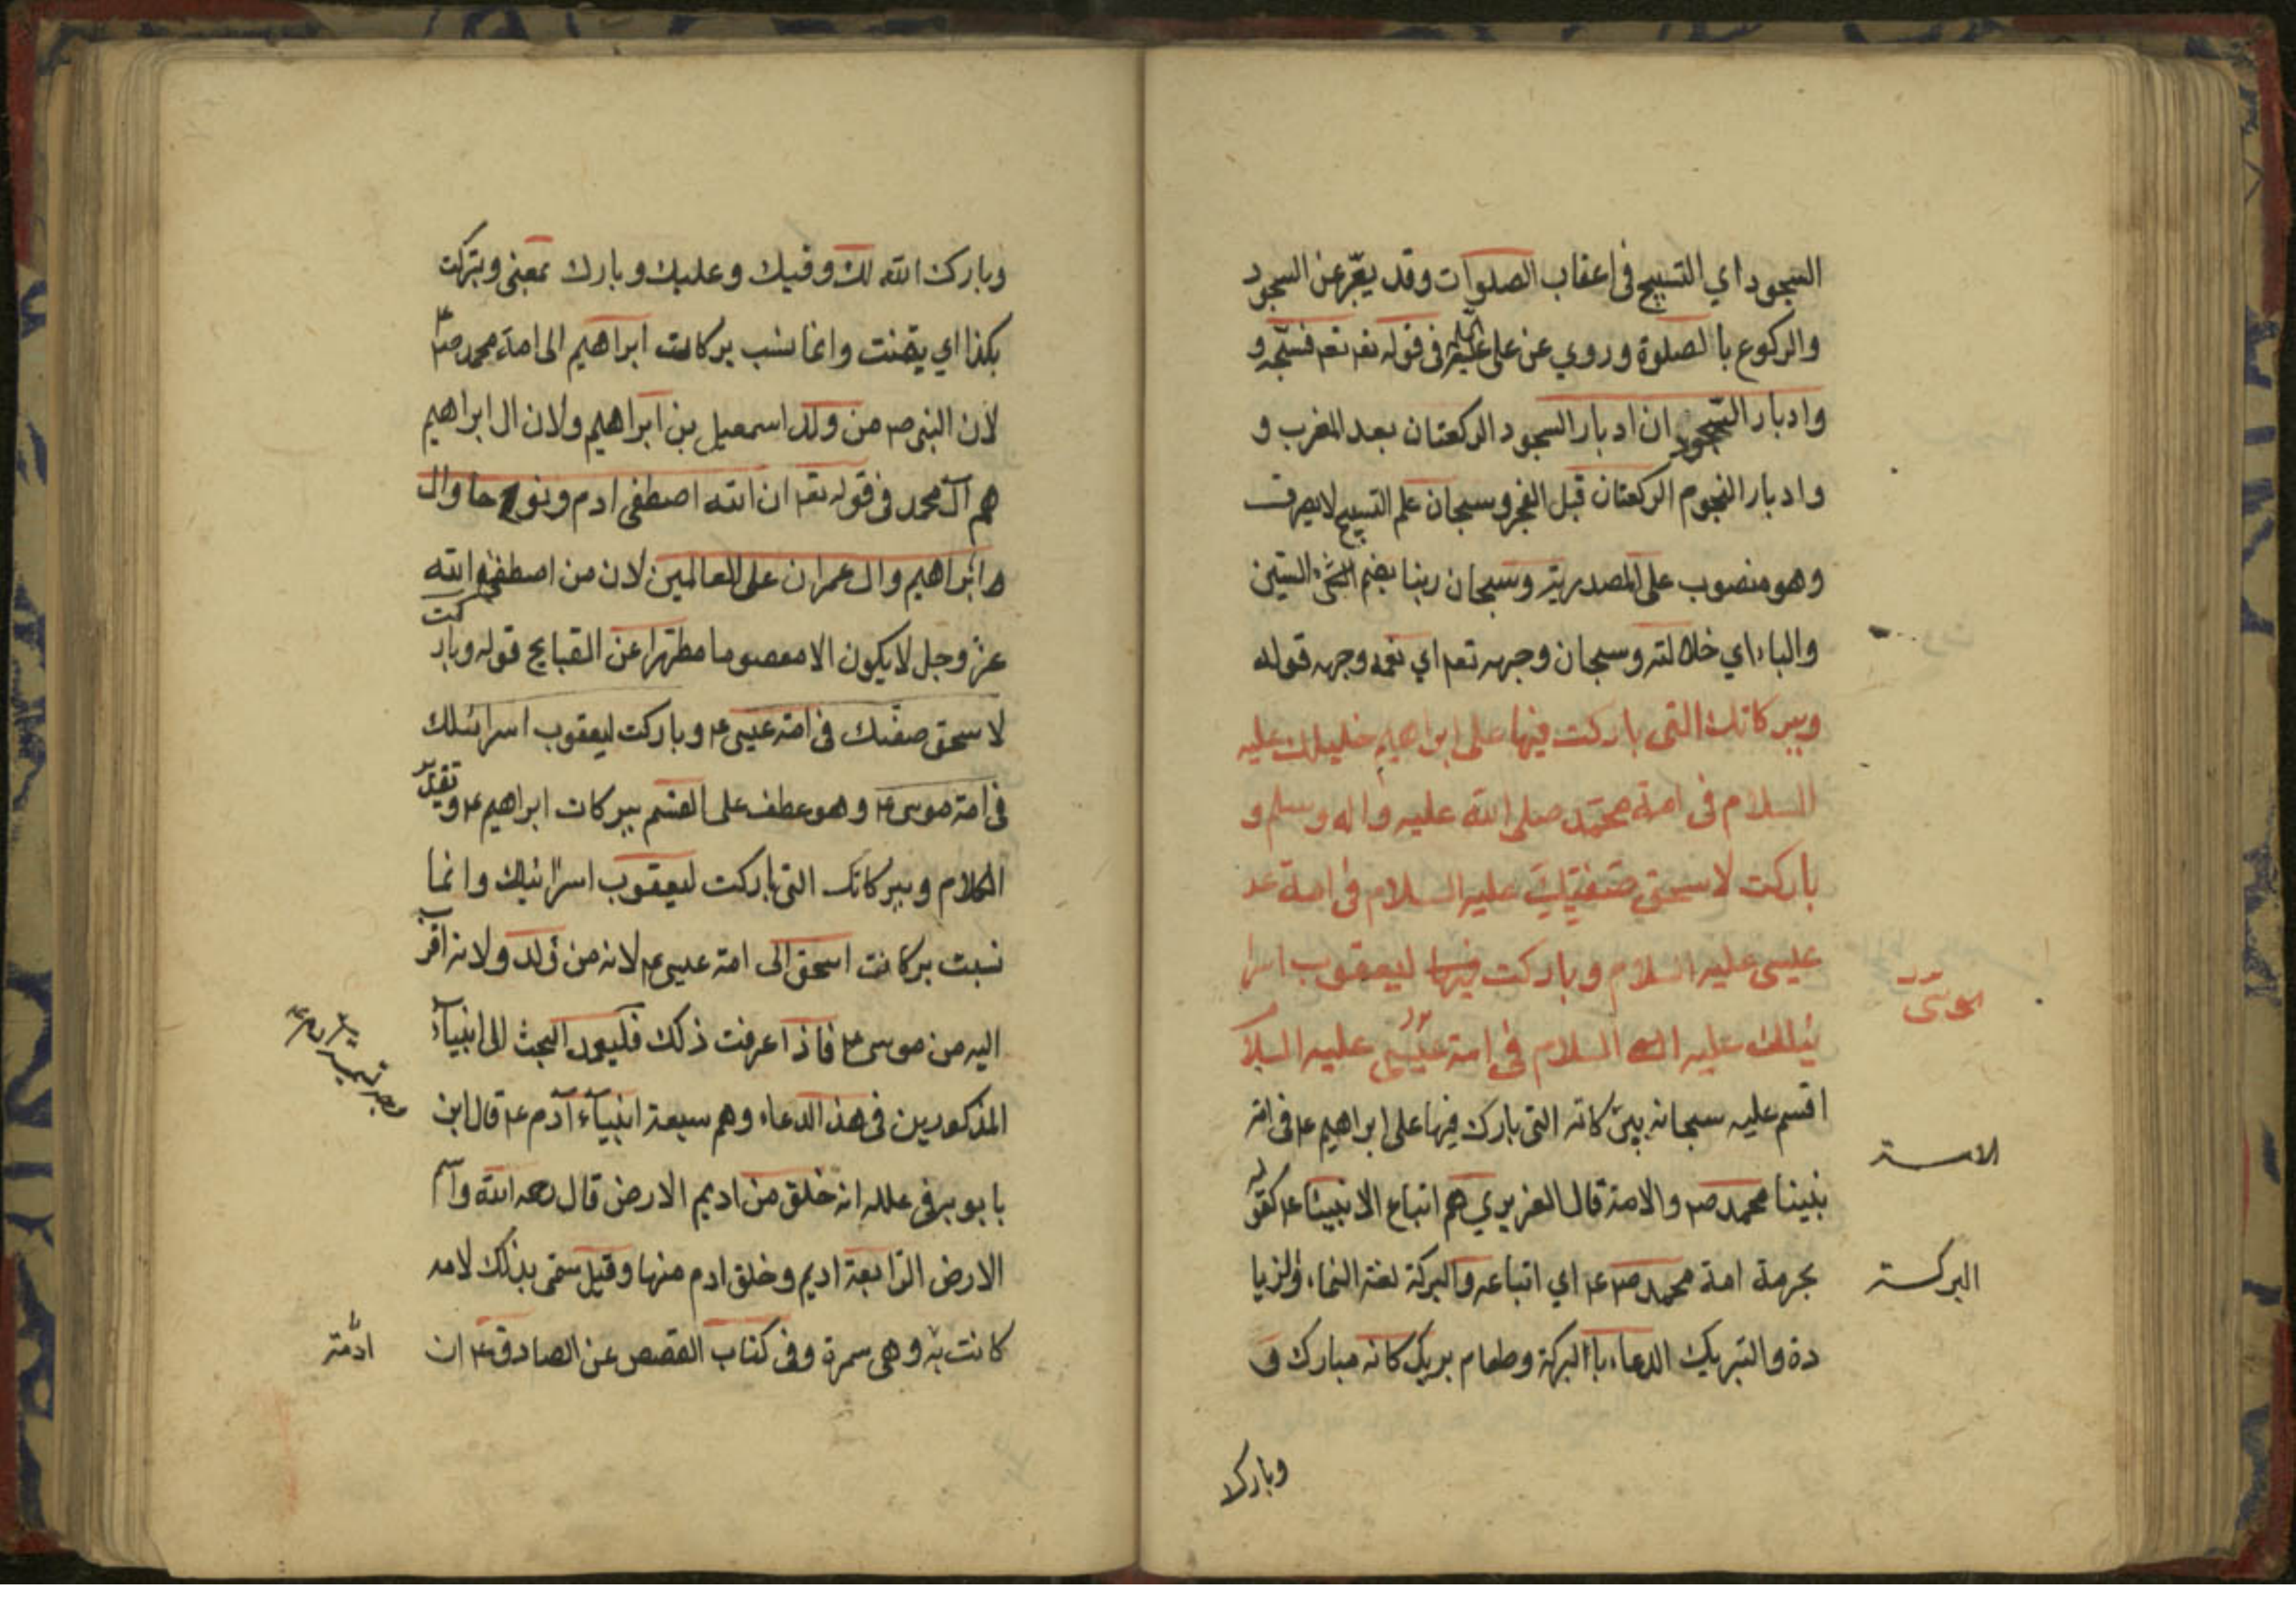 السجود اي التسبيح في اعقاب الصلوات وقد يعبّر عن السجود
والركوع بالصلوة وروي عن علي في قوله تعم فسبّحه و
وادبار السّجود ان ادبار السجود الركعتان بعد المغرب و
وادبار النجوم الركعتان قبل الفجر وسبحان علم التسبيح لا يصرف
وهو منصوب على المصدرية وسبحان ربنا بضم السين
والباء اي جلالته وسبحان وجهه تعم اي وجهه قوله
وببركاتك التي باركت فيها على ابراهيم خليلك عليه
السلام في امة محمّد صلى الله عليه واله وسلم و
باركت لاسحق صفيّك عليه السلام في امة عد
عيسى عليه السلام وباركت فيها ليعقوب اسرا
موسى
ئيلك عليه السلام في امة عيسى عليه السلا
اقسم عليه سبحانه ببركاته التي بارك فيها على ابراهيم ع في امة
الامة
نبينا محمد ص والامة قال العزيزي هم اتباع الانبيا ع كقوله
بحرمة امة محمد ص ع اي اتباعه والبركة لغة النماء والزيا
البركة
دة والتبريك الدعاء بالبركة وطعام بريك كانه مبارك و
وبارك ا
وبارك الله لك وفيك وعليك وبارك بمعنى وتبركت
بكذا اي تيمنت وانما نسب بركات ابراهيم الى امة محمد ص
لان النبي ص من ولد اسمعيل بن ابراهيم ولان ال ابراهيم
هم ال محمد في قوله تعم ان الله اصطفى ادم ونوحا وال
ابراهيم وال عمران على العالمين لان من اصطفيه الله
عز وجل لا يكون الا معصوما مطهرا عن القبايح قوله وباركت
لاسحق صفيّك في امة عيسى ع وباركت ليعقوب اسرائيلك
في امة موسى ع وهو عطف على القسم ببركات ابراهيم ع وتقدير
الكلام وببركاتك التي باركت ليعقوب اسرائيلك وانما
نسبت بركات اسحق الى امة عيسى ع لانه من ولد ولانه اقرب
اليه من موسى ع فاذا عرفت ذلك فليعد البحث الى انبيآء
المذكورين في هذ الدعاء وهم سبعة انبيآء آدم ع قال ابن
بابويه في علله انه خلق من اديم الارض قال رحمه الله واسم
الارض الرابعة اديم وخلق ادم منها وقيل سمّي بذلك لادمه
كانت به وهي سمرة وفي كتاب القصص عن الصادق ع ان
ادمة